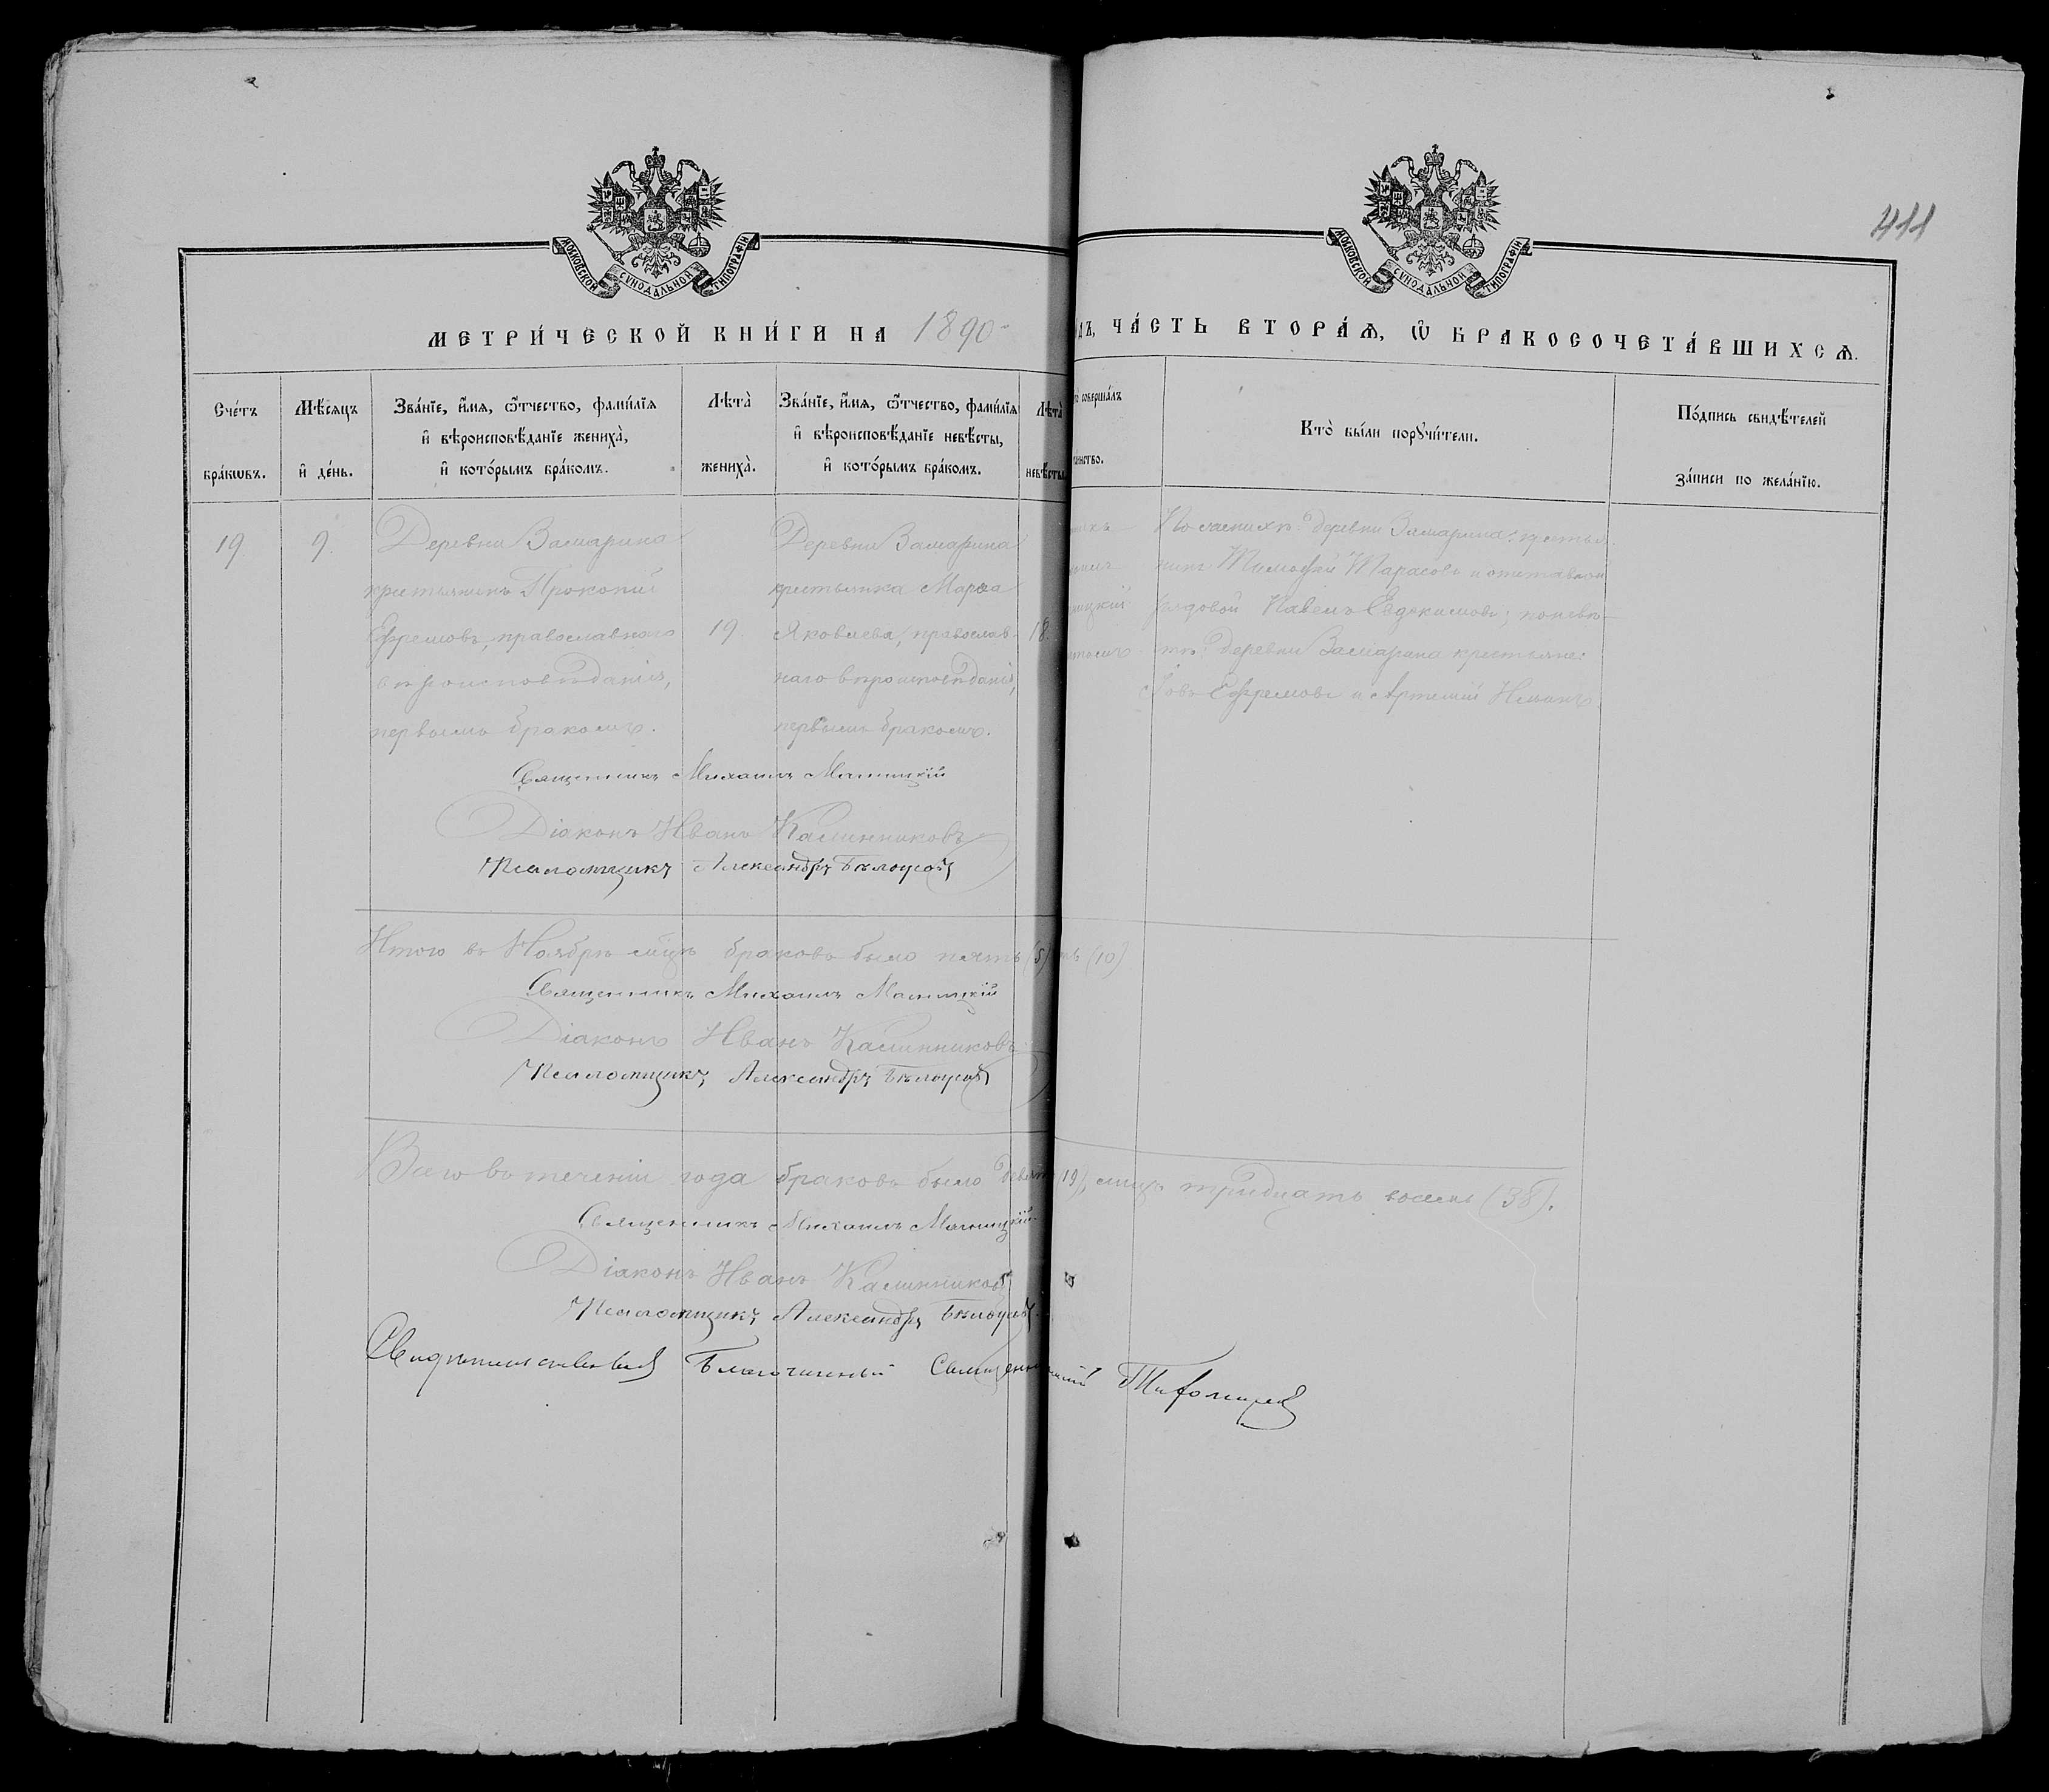 МОСКОВСКОЙ СУНОДАЛЬНОЙ ТИПОГРАФІИ
МОСКОВСКОЙ СУНОДАЛЬНОЙ ТИПОГРАФІИ
411
МЕТРИ́ЧЕСКОЙ КНИ́ГИ НА 1890
ДЪ, ЧА́СТЬ ВТОРА́Ѧ, Ѽ БРАКОСОЧЕТА́ВШИХСѦ.
Сче́тъ
бра́кѡвъ.
Мѣ́сяцъ
и҆ де́нь.
Зва́нїе, и҆́мя, ѻ҆́тчество, фами́лїя
и҆ вѣроисповѣ́данїе жениха̀,
и҆ кото́рымъ бра́комъ.
Лѣта̀
жениха̀.
Зва́нїе, и҆́мя, ѻ҆́тчество, фами́лїя
и҆ вѣроисповѣ́данїе невѣ́сты,
и҆ кото́рымъ бра́комъ.
Лѣта̀
невѣ́сты
соверша́лъ
Кто̀ бы́ли порꙋчи́тели.
По́дпись свидѣ́телей
за́писи по жела́нїю.
19
9.
Деревни Замарина
крестьянинъ Прокопій
Ефремовъ, православнаго
вѣроисповѣданія,
первымъ бракомъ.
19.
Деревни Замарина
крестьянка Марѳа
Яковлева, православ-
наго вѣроисповѣданія,
первымъ бракомъ.
18.
По женихѣ: деревни Замарина: крестья-
нинъ Тимофей Тарасовъ и отставной
рядовой Павелъ Евдокимовъ; по невѣ-
стѣ: деревни Замарина крестьяне:
Іовъ Ефремовъ и Артемій
Священникъ Михаилъ
Діаконъ Иванъ Калинниковъ
Псаломщикъ Александръ Бѣлоусовъ
Итого въ Ноябрѣ мѣцѣ браковъ было пять (5) (10)
Священникъ Михаилъ
Діаконъ Иванъ Калинниковъ
Псаломщикъ Александръ Бѣлоусовъ
Всего въ теченіи года браковъ было 19), лицъ тридцать восемь (38).
Священникъ Михаилъ
Діаконъ Иванъ Калинниковъ
Псаломщикъ Александръ Бѣлоусовъ
Свидѣтельствовалъ Благочинный Тихомировъ